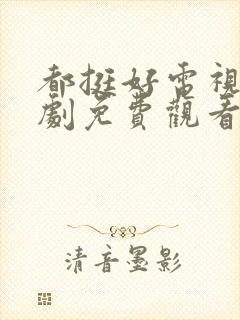 都挺好電視
劇免費觀看
清音墨影